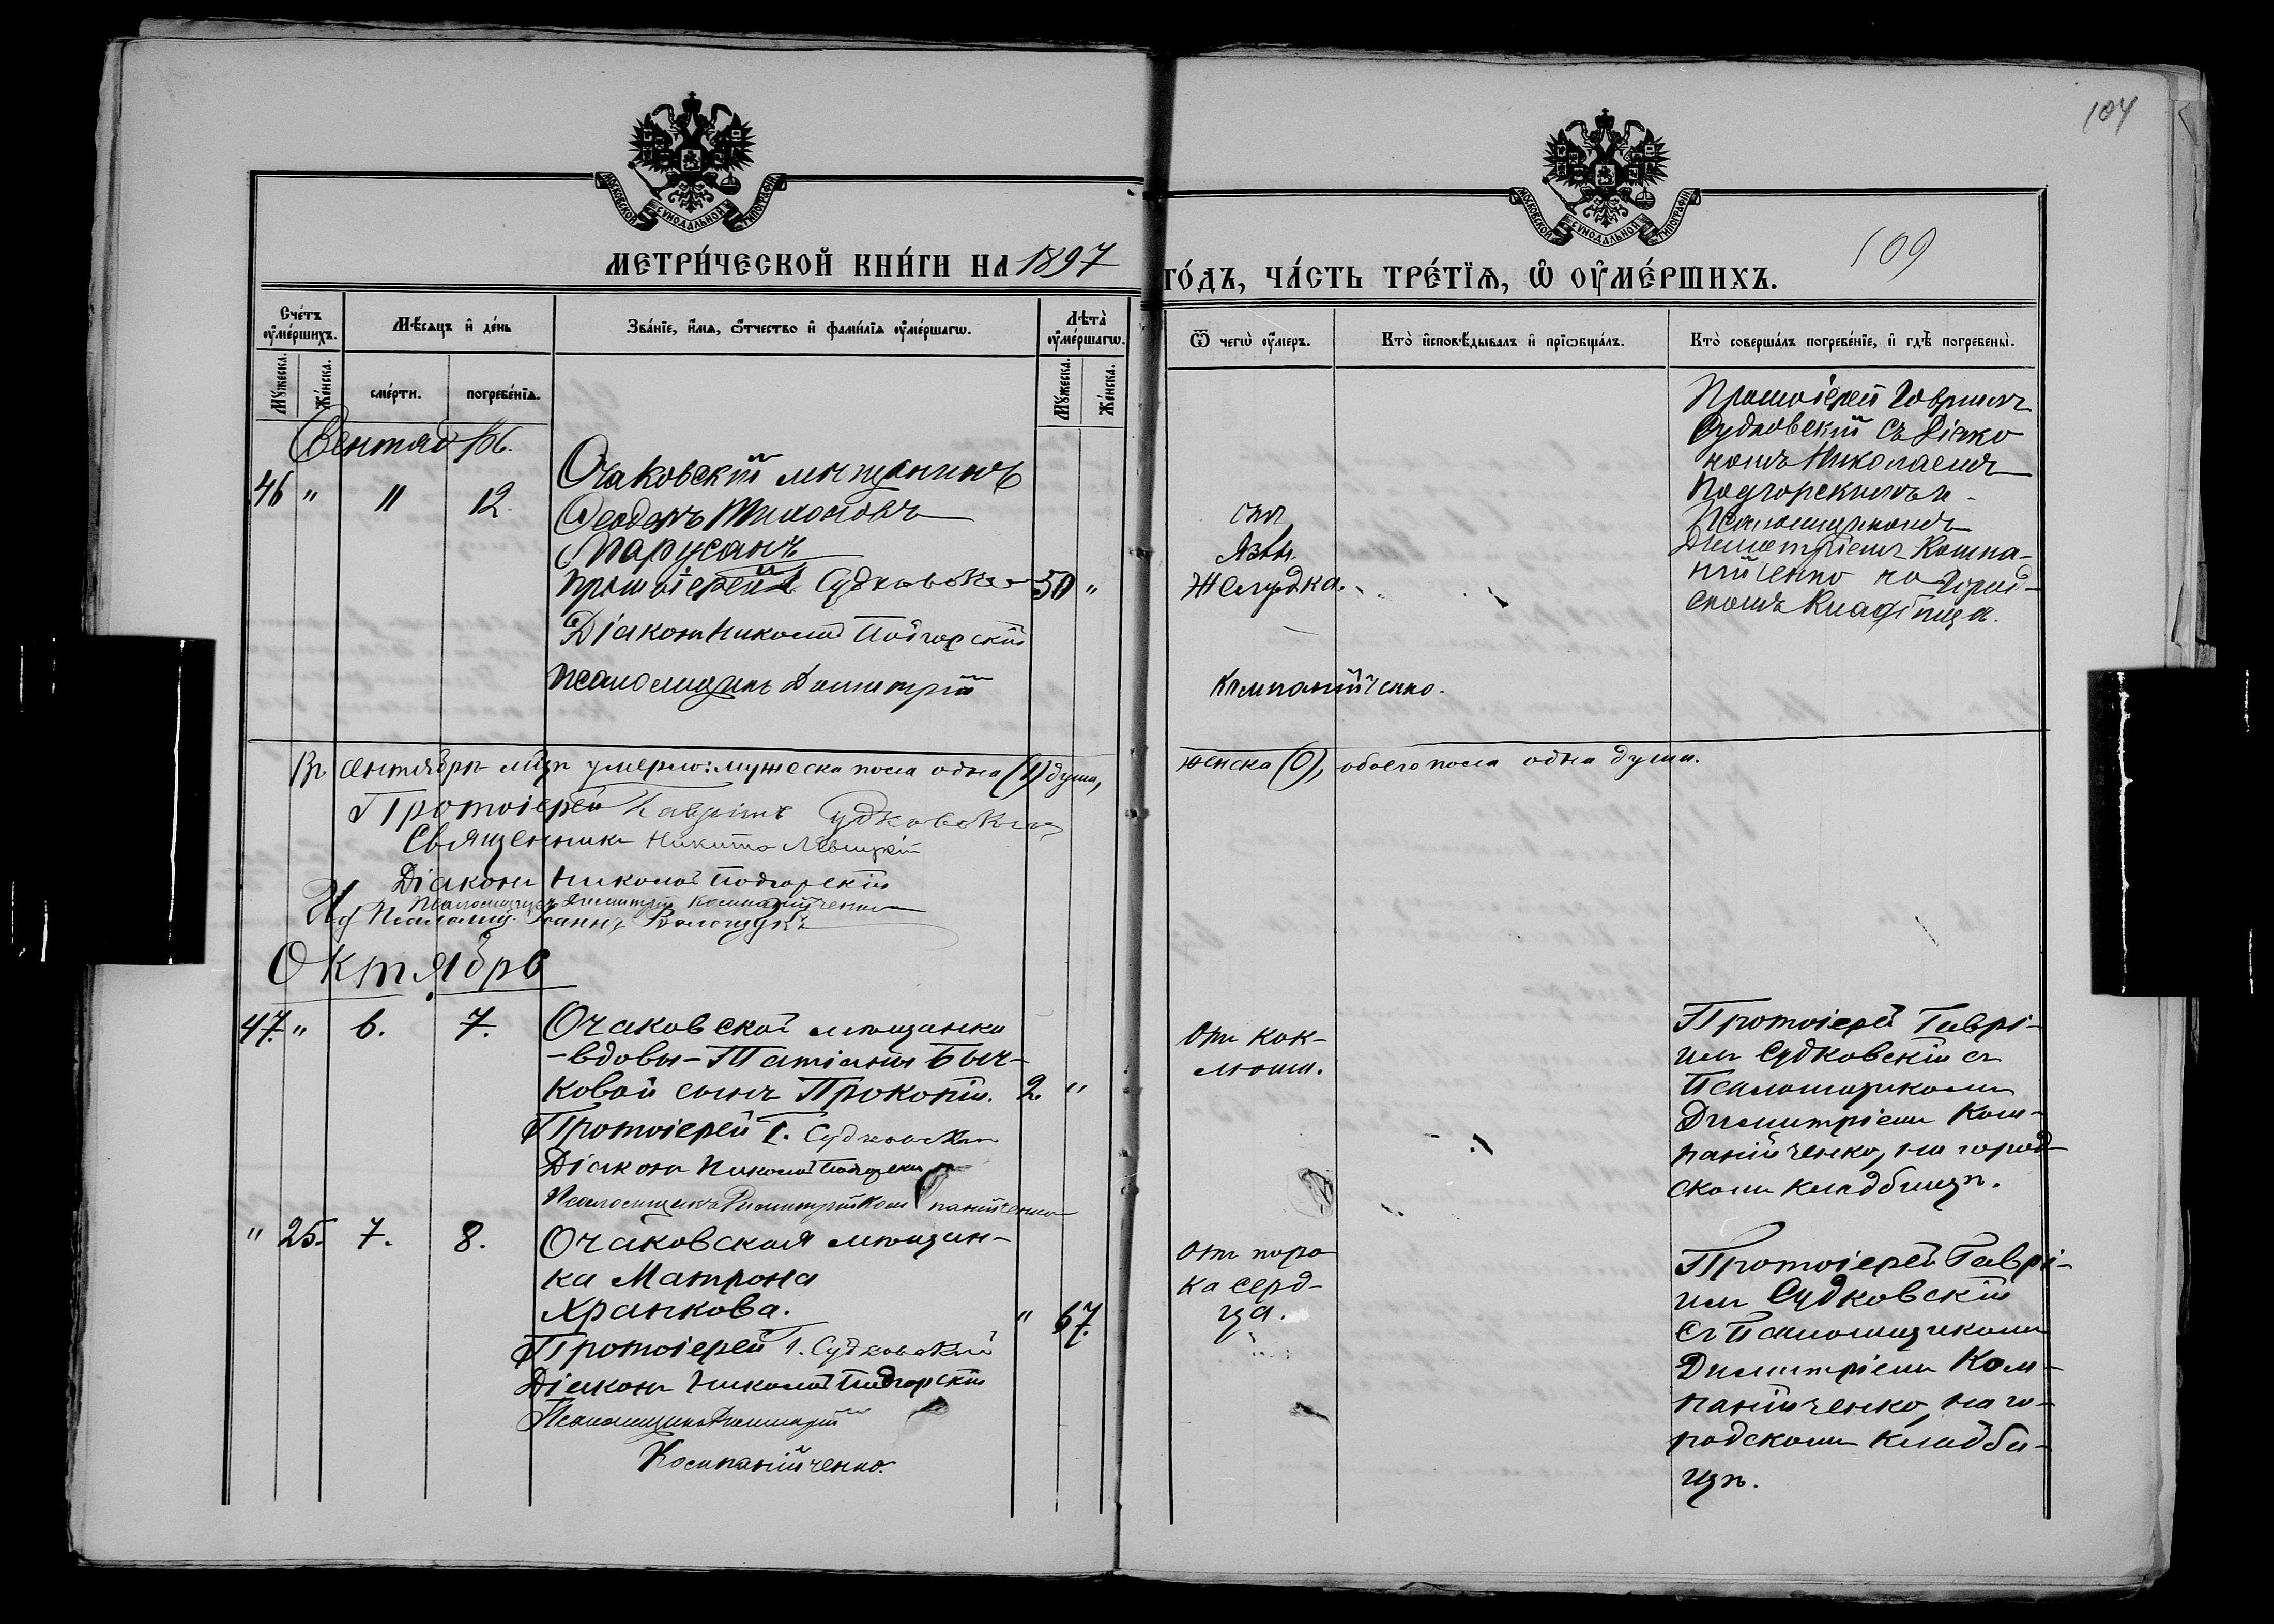 104
МОСКОВСКОЙ СѴНОДАЛЬНОЙ ТИПОГРАФІИ
МОСКОВСКОЙ СѴНОДАЛЬНОЙ ТИПОГРАФІИ
109
МЕТРИ́ЧЕСКОЙ КНИ́ГИ НА 1897
ГО́ДЪ, ЧА́СТЬ ТРЕ́ТЇѦ, Ѡ҆ ОУ҆МЕ́РШИХЪ.
Сче́тъ оу҆ме́ршихъ.
Мѣ́сяцъ и҆ де́нь
Зва́нїе, и҆́мѧ, ѻ҆́тчество и҆ фами́лїѧ оу҆ме́ршагѡ.
Лѣта̀ оу҆ме́ршагѡ.
Мꙋ́жеска.
Же́нска.
сме́рти.
погребе́нїѧ.
Мꙋ́жеска.
Же́нска.
Ѿ чегѡ̀ оу҆́меръ.
Кто̀ и҆сповѣ́дывалъ и҆ прїѡбща́лъ.
Кто̀ соверша́лъ погребе́нїе, и҆ гдѣ̀ погребены̀.
Сентябрь.
46 " 11 12.
Очаковскій мѣщанинъ
Ѳеодоръ Тихоновъ
Парусанъ
50 "
Протоіерей Г. Судковскій
Діаконъ Николай Подгорскій
Псаломщикъ Димитрій
Компанійченко.
отъ
язвы
желудка.
Протоіерей Гавріилъ
Судковскій съ Діако
номъ Николаемъ
Подгорскимъ и
Псаломщикомъ
Димитріемъ Компа-
нійченко на Город-
скомъ Кладбищѣ.
Въ сентябрѣ м-цѣ умерло: мужеска пола одна (1) душа,
женска (0), обоего пола одна душа.
Протоіерей Гавріилъ Судковскій
Священникъ Никита Левицкій
Діаконъ Николай Подгорскій
Псаломщикъ Димитрій Компанійченко
Псаломщ. Іоаннъ
Октябрь
47. " 6. 7.
Очаковской мѣщанки
-вдовы- Татіаны Быч-
ковой сынъ Прокопій. 2. "
Протоіерей Г. Судковскій
Діаконъ Николай Подгорскій
Псаломщикъ Димитрій Компанійченко
Отъ кок-
люша.
Протоіерей Гаврі-
илъ Судковскій съ
Псаломщикомъ
Димитріемъ Ком-
панійченко, на город-
скомъ кладбищѣ.
" 25. 7. 8.
Очаковская мѣщан-
ка Матрона
Хранкова. " 67.
Протоіерей Г. Судковскій
Діаконъ Николай Подгорскій
Псаломщикъ Димитрій
Компанійченко.
Отъ поро
ка серд-
ца.
Протоіерей Гаврі-
илъ Судковскій
съ Псаломщикомъ
Димитріемъ Ком-
панійченко, на го-
родскомъ кладби-
щѣ.